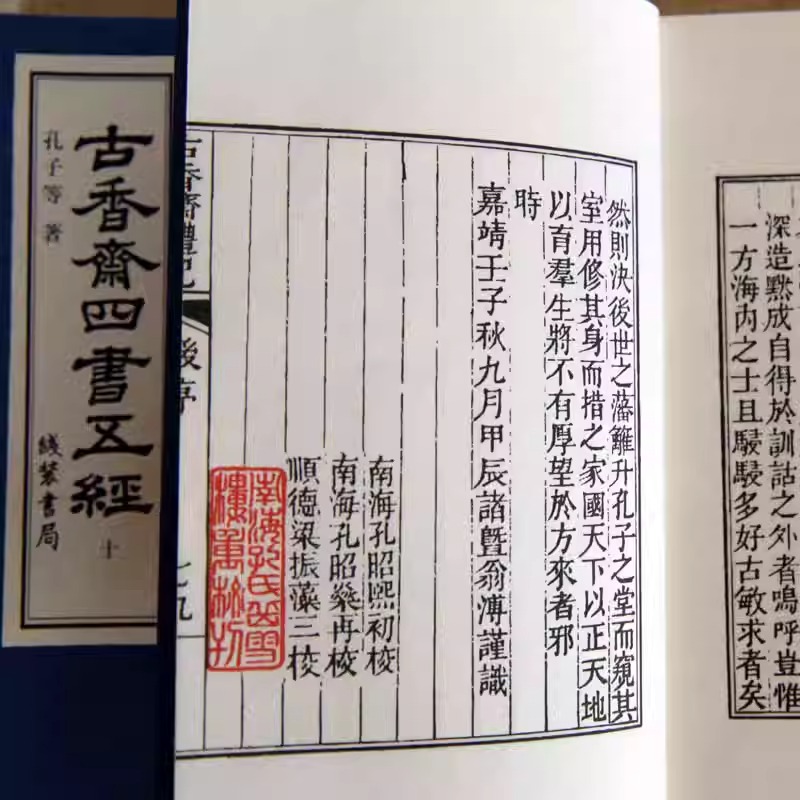 古香齋四書五經
孔子等 著
綫裝書局
十
深造黙成自得於訓詁之外者嗚呼豈惟
一方海内之士且駸駸多好古敏求者矣
然則決後世之藩籬升孔子之堂而窺其
室用修其身而措之家國天下以正天地
以育羣生將不有厚望於方來者邪
時
嘉靖壬子秋九月甲辰諸暨翁溥謹識
南海孔昭熙初校
南海孔昭燊再校
順德梁振藻三校
南海孔氏岳雪
樓重校刊
古香齋禮記
後序